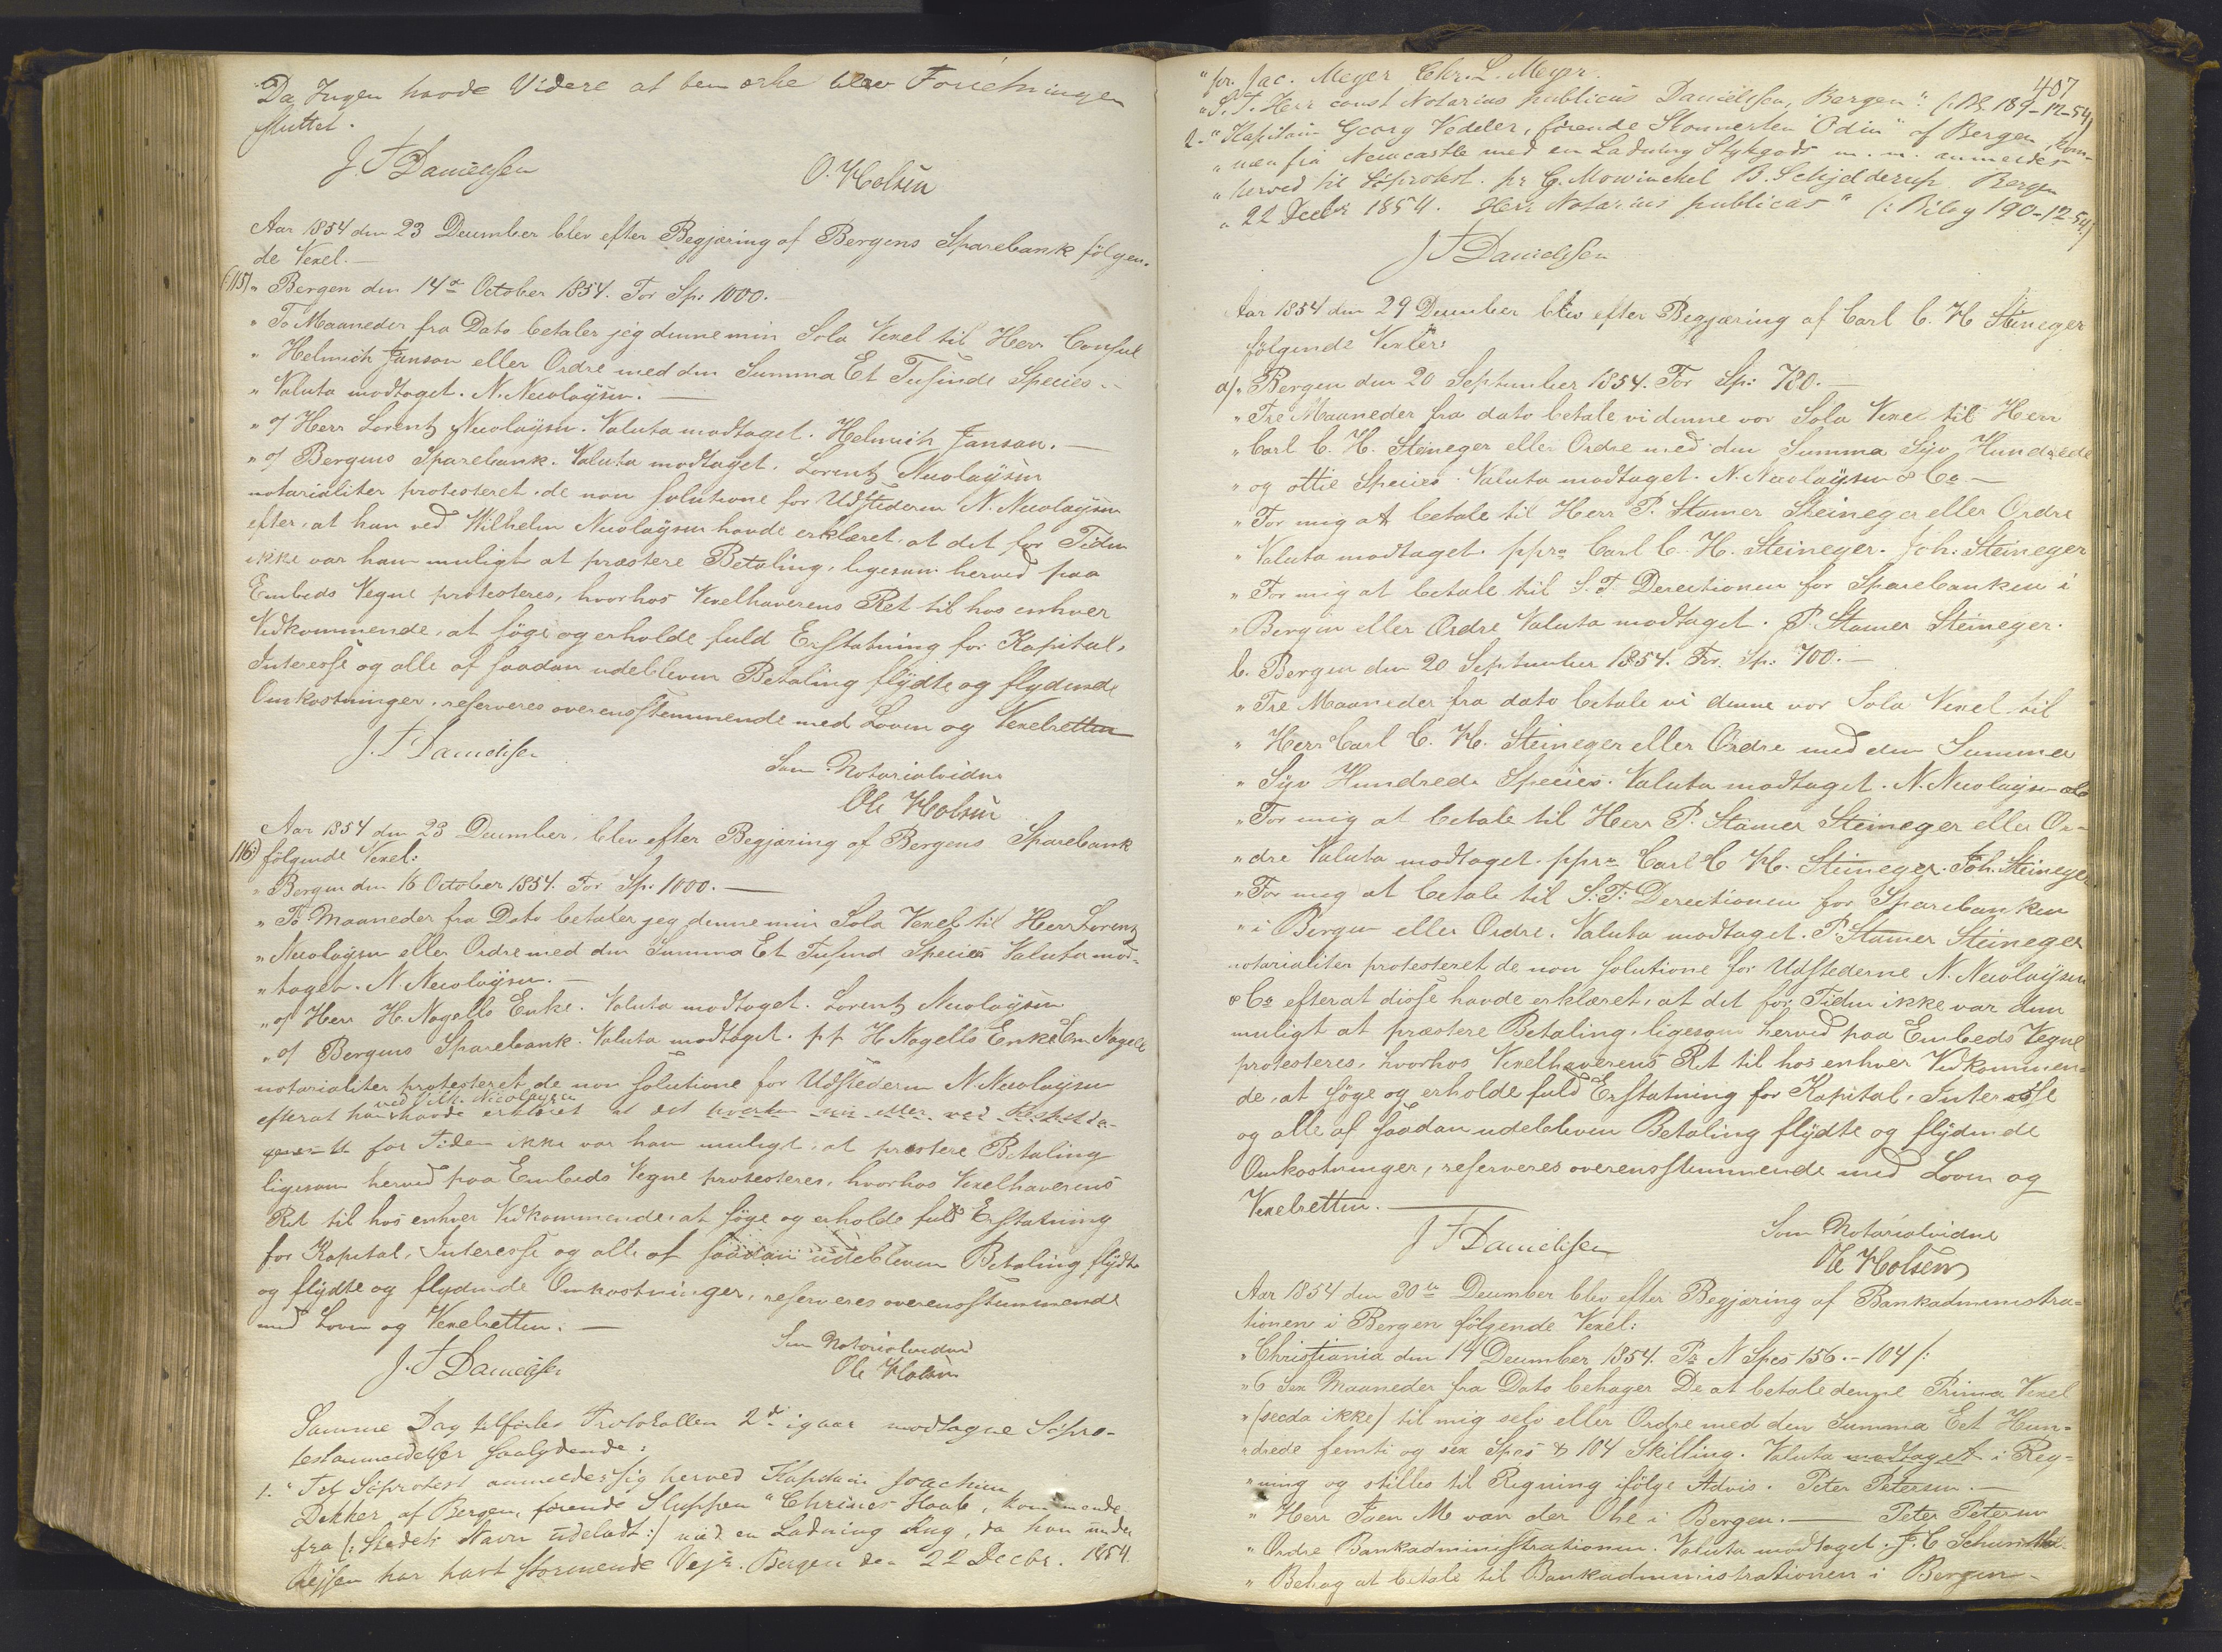 Da Ingen havde Videre at bemærke blev Forretningen
sluttet.
J. F Danielssen
O. Holsen
Aar 1854 den 23 December blev efter Begjæring af Bergens Sparebank følgen-
de Vexel.—
(115) „ Bergen den 14de October 1854. For Sp: 1000.—
„ To Maaneder fra Dato betaler jeg denne min Sola Vexel til Herr Consul
„ Helmich Janson eller Ordre med den Summa Et Tusinde Species.—
„ Valuta modtaget. N. Nicolaysen.—
„ o/ Herr Lorentz Nicolaysen. Valuta modtaget. Helmich Janson.—
„ o/ Bergens Sparebank. Valuta modtaget. Lorentz Nicolaysen
notarialiter protesteret de non solutione for Udstederen N. Nicolaysen
efter at han ved Wilhelm Nicolaysen havde erklæret, at det for Tiden
ikke var ham muligt at præstere Betaling, ligesom herved paa
Embeds Vegne protesteres, hvorhos Vexelhaverens Ret til hos enhver
Vidkommende, at søge og erholde fuld Erstatning for Kapital,
Interesse og alle af saadan udebleven Betaling flydte og flydende
Omkostninger, reserveres overensstemmende med Loven og Vexelretten
J. F Danielssen
Som Notarialvidne
Ole Holsen
Aar 1854 den 23 December, blev efter Begjæring af Bergens Sparebank
116) følgende Vexel:
„ Bergen den 16 October 1854. For Sp: 1000.—
„ To Maaneder fra Dato betaler jeg denne min Sola Vexel til Herr Lorentz
„ Nicolaysen eller Ordre med den Summa Et Tusind Species Valuta mod-
„ taget. N. Nicolaysen.—
„ o/ Herr H. Nagells Enke. Valuta modtaget. Lorentz Nicolaysen
„ o/ Bergens Sparebank. Valuta modtaget. pp H Nagells Enke Em Nagell
notarialiter protesteret de non solutione for Udstederen N Nicolaysen
ved Vilh. Nicolaysen
efterat han havde erklæret at det hverken nu eller ved
for Tiden ikke var ham muligt, at præstere Betaling
ligesom herved paa Embeds Vegne protesteres, hvorhos Vexelhaverens
Ret til hos enhver Vidkommende, at søge og erholde fuld Erstatning
for Kapital, Interesse og alle af saadan udebleven Betaling flydte
og flydte og flydende Omkostninger, reserveres overensstemmende
med Loven og Vexelretten.—
J. F Danielssen
Som Notarialvidne
Ole Holsen
Samme Dag tilførtes Protokollen 2de igaar modtagne Søpro-
testanmeldelser saalydende:
1. "Til Søprotest anmelder sig herved Kapitain Joachim
Dekker af Bergen, førende Sluppen "Christines Haab, kommende
fra (: Stedets Navn udeladt:) med en Ladning Rug, da han under
Rejsen har havt stormende Vejr. Bergen den 22 Decbr. 1854.
407
"for. Jac. Meyer Chr. L. Meyer.
"S. T. Herr const Notarius publicus Danielssen, Bergen". (: Bl. 189-12-54)
2. "Kapitain Georg Vedeler, førende Skonnerten "Odin" af Bergen, kom-
„ men fra Newcastle med en Ladning Stykgods m. m. anmelder
„ herved til Søprotest. pr G. Mowinckel B. Schjelderup. Bergen
„ 22 Decbr 1854. Herr Notarius publicus" (: Bilag 190-12-54)
J F Danielssen
Aar 1854 den 29 December blev efter Begjæring af Carl C. H Steineger
følgende Vexler:
a) „ Bergen den 20 September 1854. For Sp: 780.—
„ Tre Maaneder fra dato betale vi denne vor Sola Vexel til Herr
„ Carl C. H. Steineger eller Ordre med den Summa Syv Hundrede
„ og ottie Species. Valuta modtaget. N. Nicolaysen & Co—
„ For mig at betale til Herr P. Stamer Steineger eller Ordre
„ Valuta modtaget. ppra Carl C. H. Steineger. Joh. Steineger
„ For mig at betale til S. T. Directionen for Sparebanken i
„ Bergen eller Ordre Valuta modtaget. P. Stamer Steineger.
b. Bergen den 20 September 1854. For Sp: 700.—
„ Tre Maaneder fra dato betale vi denne vor Sola Vexel til
„ Herr Carl C. H. Steineger eller Ordre med den Summa
„ Syv Hundrede Species. Valuta modtaget. N. Nicolaysen & Co
„ For mig at betale til Herr P. Stamer Steineger eller Or-
„ dre Valuta modtaget. ppra Carl C H. Steineger. Joh. Steineger
„ For mig at betale til S. T. Directionen for Sparebanken
„ i Bergen eller Ordre. Valuta modtaget. P. Stamer Steineger
notarialiter protesteret de non solutione for Udstederne N. Nicolaysen
& Co efterat disse havde erklæret, at det for Tiden ikke var dem
muligt at præstere Betaling, ligesom herved paa Embeds Vegne
protesteres, hvorhos Vexelhaverens Ret til hos enhver Vidkommen-
de, at søge og erholde fuld Erstatning for Kapital, Interesse
og alle af saadan udebleven Betaling flydte og flydende
Omkostninger, reserveres overensstemmende med Loven og
Vexelretten.—
J F Danielssen
Som Notarialvidne
Ole Holsen
Aar 1854 den 30te December blev efter Begjæring af Bankadministra-
tionen i Bergen følgende Vexel:
„ Christiania den 14 December 1854. Pr N Spes 156.-104/:
„ 6 Sex Maaneder fra Dato behager De at betale denne Prima Vexel
„ (secda ikke) til mig selv eller Ordre med den Summa Eet Hun-
„ drede femti og sex Spes & 104 Skilling. Valuta modtaget i Reg-
„ ning og stilles til Regning ifølge Advis. Peter Petersen.—
„ Herr Iven M van der Ohe i Bergen.— Peter Petersen
„ Ordre Bankadministrationen. Valuta modtaget. J. C
„ Behag at betale til Bankadministrationen i Bergen